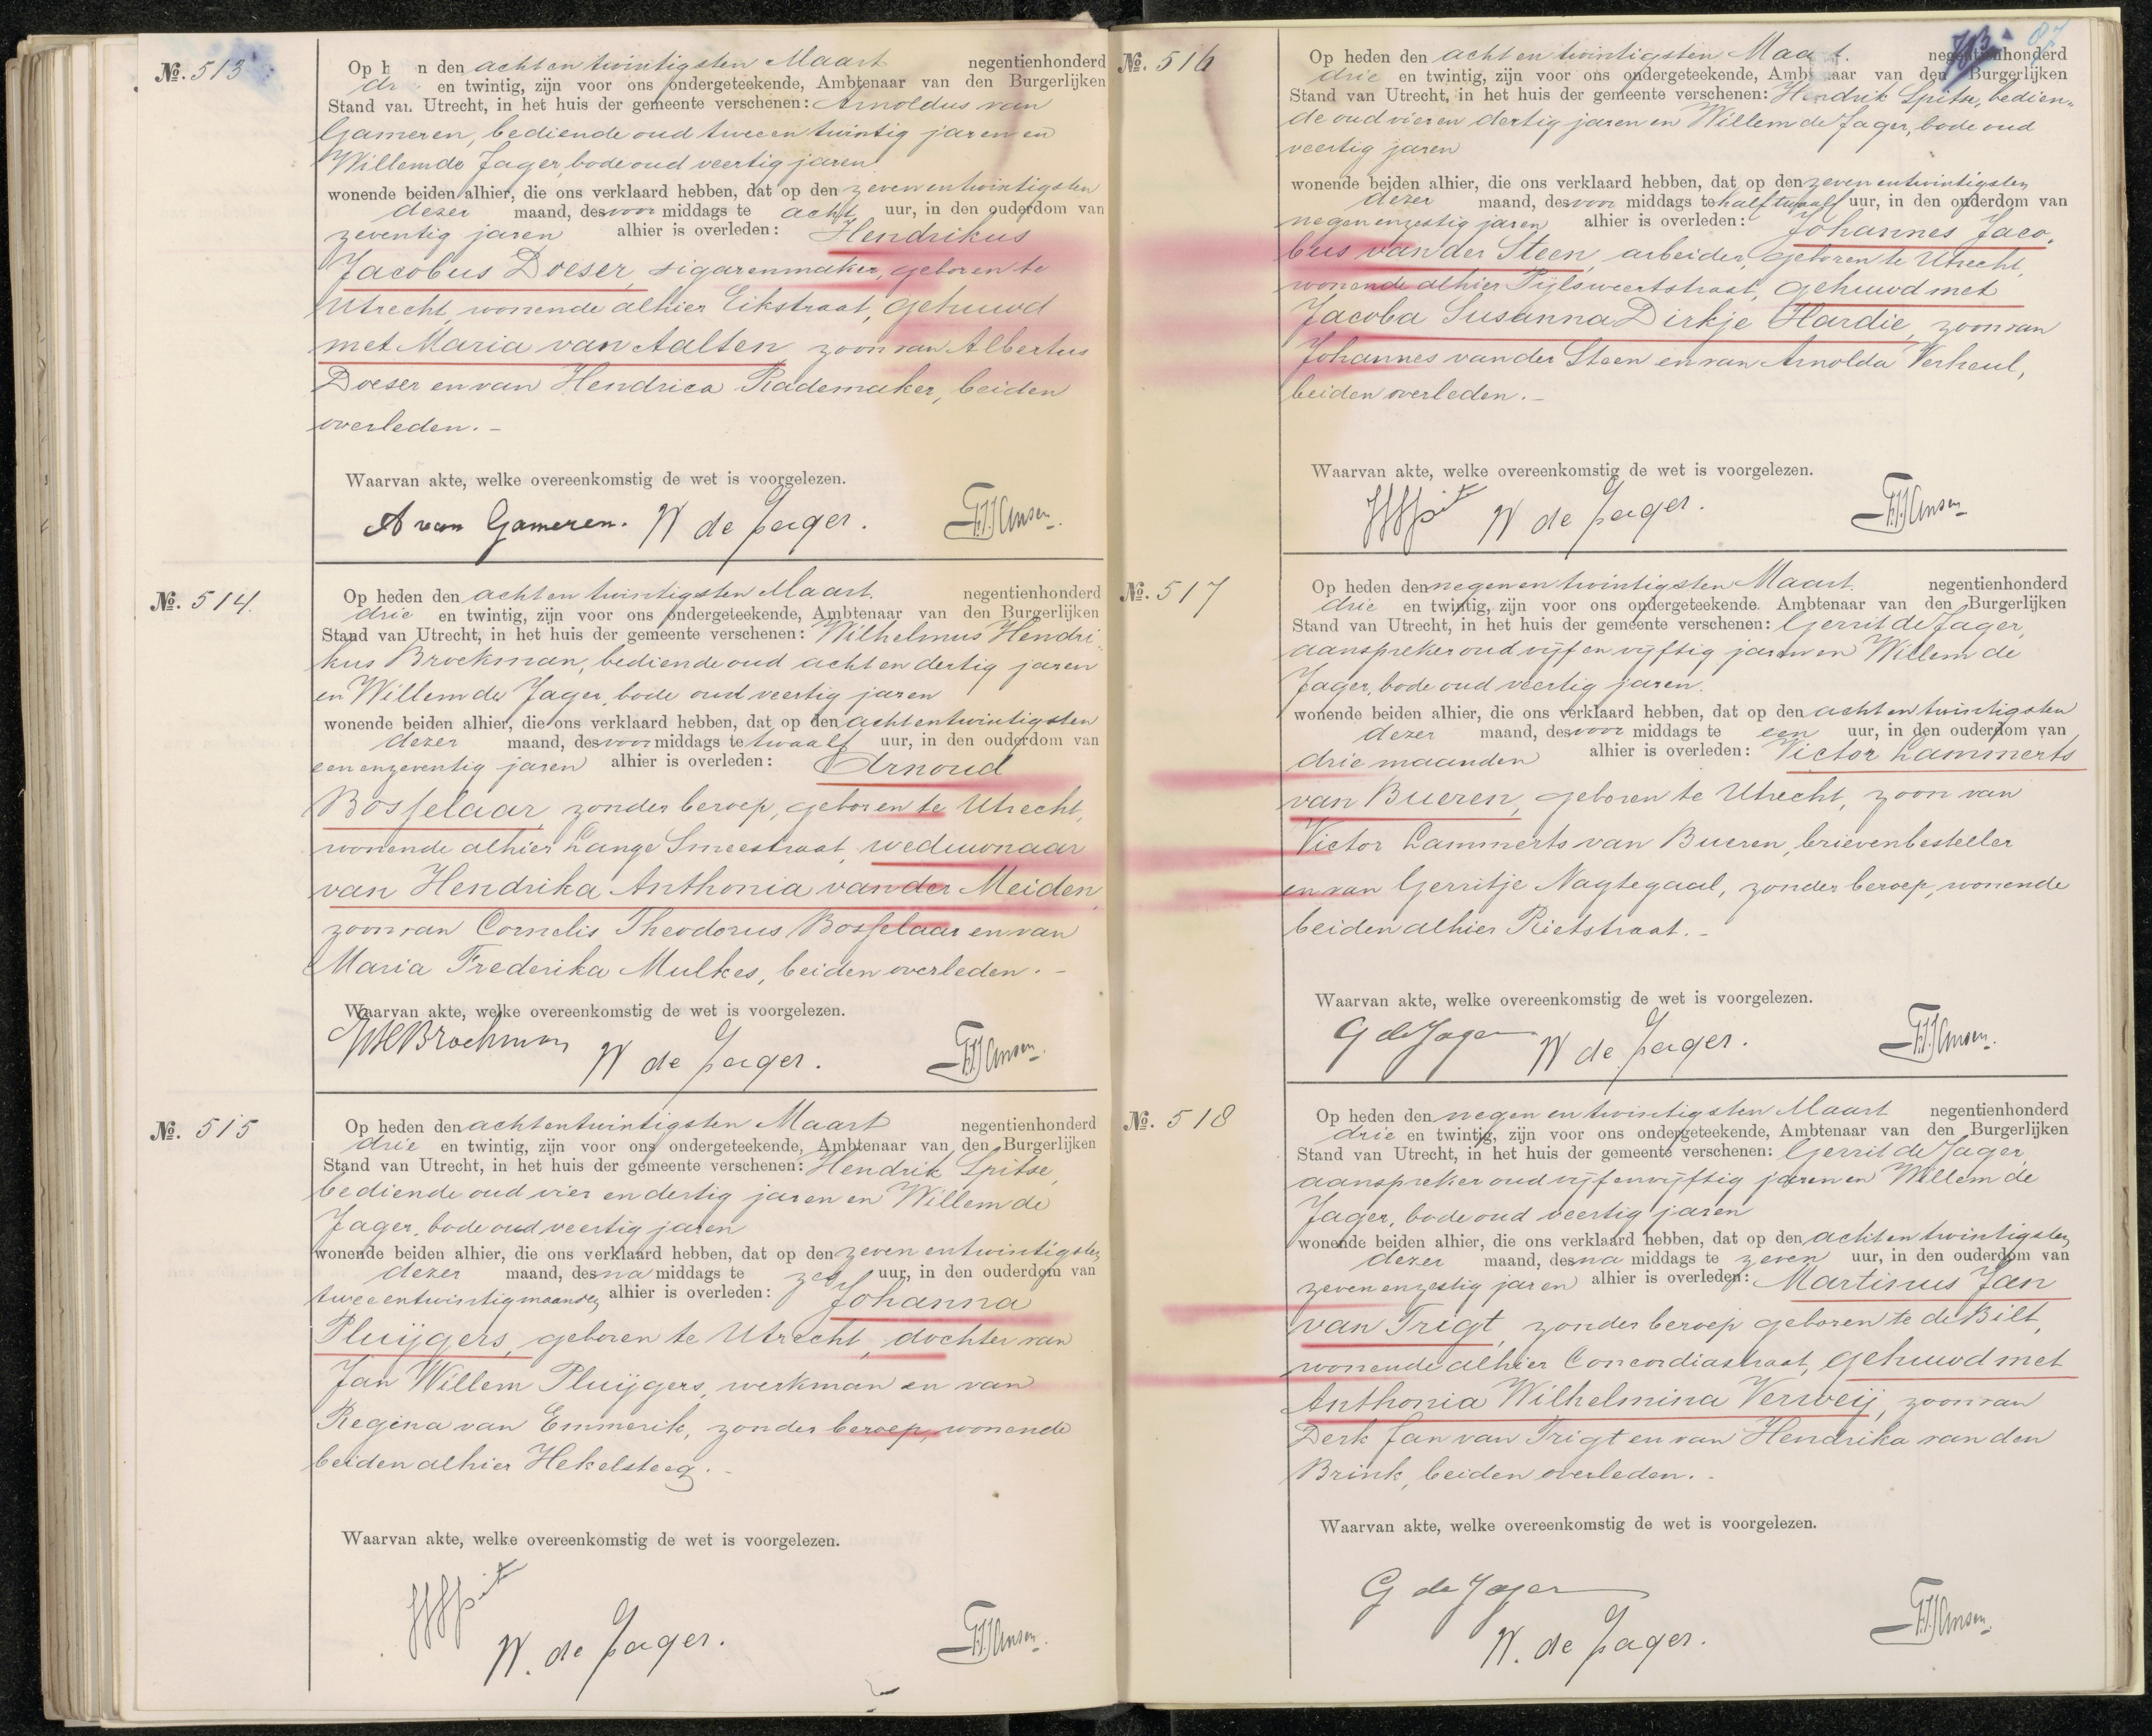 №. 513
Op h n den achtentwintigsten Maart negentienhonderd
dr en twintig, zijn voor ons ondergeteekende, Ambtenaar van den Burgerlijken
Stand van Utrecht, in het huis der gemeente verschenen: Arnoldus van
Gameren, bediende oud tweeentwintig jaren en
Willem de Jager, bode oud veertig jaren
wonende beiden alhier, die ons verklaard hebben, dat op den zevenentwintigsten
dezer maand, des voor middags te acht uur, in den ouderdom van
zeventig jaren alhier is overleden: Hendrikus
Jacobus Doeser, sigarenmaker, geboren te
Utrecht, wonende alhier Eikstraat, gehuwd
met Maria van Aalten, zoon van Albertus
Doeser en van Hendrica Rademaker, beiden
overleden. -
Waarvan akte, welke overeenkomstig de wet is voorgelezen.
A van Gameren. W de Jager.
№. 514.
Op heden den achtentwintigsten Maart. negentienhonderd
drie en twintig, zijn voor ons ondergeteekende, Ambtenaar van den Burgerlijken
Stand van Utrecht, in het huis der gemeente verschenen: Wilhelmus Hendri-
kus Brockman, bediende oud achtendertig jaren
en Willem de Jager, bode oud veertig jaren
wonende beiden alhier, die ons verklaard hebben, dat op den achtentwintigsten
dezer maand, des voor middags te twaalf uur, in den ouderdom van
eenenzeventig jaren alhier is overleden: Arnoud
Bosselaar, zonder beroep, geboren te Utrecht,
wonende alhier Lange Smeestraat, weduwnaar
van Hendrika Anthonia van der Meiden,
zoon van Cornelis Theodorus Bosselaar en van
Maria Frederika Mulkes, beiden overleden. -
Waarvan akte, welke overeenkomstig de wet is voorgelezen.
W de Jager.
№. 515
Op heden den achtentwintigsten Maart negentienhonderd
drie en twintig, zijn voor ons ondergeteekende, Ambtenaar van den Burgerlijken
Stand van Utrecht, in het huis der gemeente verschenen: Hendrik Spitse,
bediende oud vier en dertig jaren en Willem de
Jager, bode oud veertig jaren
wonende beiden alhier, die ons verklaard hebben, dat op den zevenentwintigsten
dezer maand, des na middags te zes uur, in den ouderdom van
tweeentwintig maanden alhier is overleden: Johanna
Pluijgers, geboren te Utrecht, dochter van
Jan Willem Pluijgers, werkman en van
Regina van Emmerik, zonder beroep, wonende
beiden alhier Hekelsteeg. -
Waarvan akte, welke overeenkomstig de wet is voorgelezen.
W. de Jager.
№. 516
Op heden den achtentwintigsten Maart. negentienhonderd
drie en twintig, zijn voor ons ondergeteekende, Amb aar van den Burgerlijken
Stand van Utrecht, in het huis der gemeente verschenen: Hendrik Spitse, bedien-
de oud vier en dertig jaren en Willem de Jager, bode oud
veertig jaren
wonende beiden alhier, die ons verklaard hebben, dat op den zevenentwintigsten
dezer maand, des voor middags te half twaalf uur, in den ouderdom van
negenenzestig jaren alhier is overleden: Johannes Jaco-
bus van der Steen, arbeider, geboren te Utrecht,
wonende alhier Pijlsweertstraat, gehuwd met
Jacoba Susanna Dirkje Hardie, zoon van
Johannes van der Steen en van Arnolda Verheul,
beiden overleden. -
Waarvan akte, welke overeenkomstig de wet is voorgelezen.
W de Jager.
№. 517
Op heden den negenentwintigsten Maart. negentienhonderd
drie en twintig, zijn voor ons ondergeteekende. Ambtenaar van den Burgerlijken
Stand van Utrecht, in het huis der gemeente verschenen: Gerrit de Jager,
aanspreker oud vijf en vijftig jaren en Willem de
Jager, bode oud veertig jaren.
wonende beiden alhier, die ons verklaard hebben, dat op den achtentwintigsten
dezer maand, des voor middags te een uur, in den ouderdom van
drie maanden alhier is overleden: Victor Lammerts
van Bueren, geboren te Utrecht, zoon van
Victor Lammerts van Bueren, brievenbesteller
en van Gerritje Nagtegaal, zonder beroep, wonende
beiden alhier Rietstraat. -
Waarvan akte, welke overeenkomstig de wet is voorgelezen.
G de Jager W de Jager.
№. 518
Op heden den negenentwintigsten Maart negentienhonderd
drie en twintig, zijn voor ons ondergeteekende, Ambtenaar van den Burgerlijken
Stand van Utrecht, in het huis der gemeente verschenen: Gerrit de Jager,
aanspreker oud vijfenvijftig jaren en Willem de
Jager, bode oud veertig jaren
wonende beiden alhier, die ons verklaard hebben, dat op den achtentwintigsten
dezer maand, des na middags te zeven uur, in den ouderdom van
zevenenzestig jaren alhier is overleden: Martinus Jan
van Trigt, zonder beroep geboren te de Bilt,
wonende alhier Concordiastraat, gehuwd met
Anthonia Wilhelmina Verweij, zoon van
Derk Jan van Trigt en van Hendrika van den
Brink, beiden overleden. -
Waarvan akte, welke overeenkomstig de wet is voorgelezen.
G de Jager
W. de Jager.